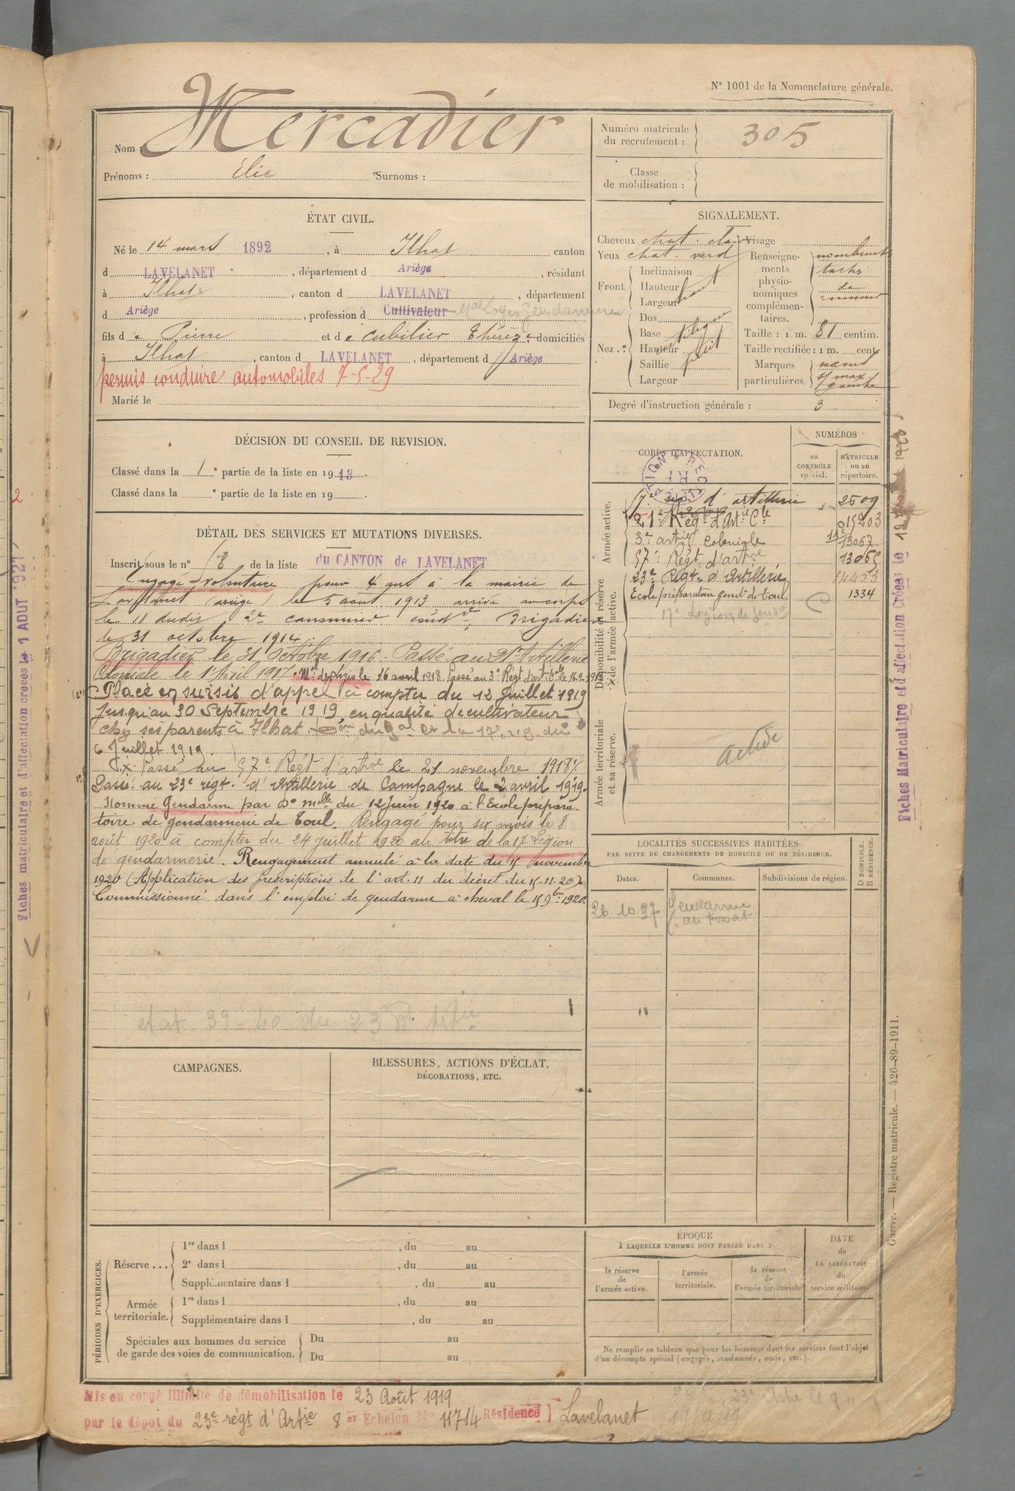 N° 1001 de la Nomenclature générale.
Nom : Mercadier
Prénoms : Elie Surnoms :
Numéro matricule du recrutement : 305
Classe de mobilisation :
ÉTAT CIVIL.
Né le 14 mars 1892, à Ilhat canton
d LAVELANET, département d Ariège, résidant
à Ilhat, canton d LAVELANET, département
d Ariège, profession d Cultivateur
fils de Pierre et de Cubilier Thérèse domiciliés
à Ilhat, canton d LAVELANET, département d Ariège
permis conduire automobiles 7-5-29
Marié le
SIGNALEMENT.
Cheveux chat. clair Visage
Yeux chat. verd
Front. Inclinaison
Hauteur
Largeur
Nez. Dos
Base
Hauteur
Saillie
Largeur
Renseignements physionomiques complémentaires. nombreuses taches de rousseur
Taille : 1 m. 81 centim.
Taille rectifiée : 1 m. cent.
Marques particulières.
Degré d'instruction générale : 3
DÉCISION DU CONSEIL DE REVISION.
Classé dans la 1e partie de la liste en 1913.
Classé dans la e partie de la liste en 19
DÉTAIL DES SERVICES ET MUTATIONS DIVERSES.
Inscrit sous le n° 18 de la liste du CANTON de LAVELANET
Engagé volontaire pour 4 ans à la mairie de
(Ariège) le 5 août 1913 arrivé au corps
le 11 dudit 2e canonnier conduct. Brigadier
le 31 octobre 1914
Brigadier le 31 octobre 1916. Passé au 21e Artillerie
Coloniale le 1er Avril 1917. Mal des logis le 16 avril 1918. Passé au 3e Régt d'art. Cle le
Placé en sursis d'appel à compter du 12 Juillet 1919
jusqu'au 30 Septembre 1919 en qualité de cultivateur
chez ses parents à Ilhat
6 Juillet 1919.
Passé au 57e Régt d'artie le 21 novembre 1918
Passé au 23e régt d'Artillerie de Campagne le 2 avril 1919.
Nommé Gendarme par Don mlle du 12 juin 1920 à l'Ecole prépara-
toire de gendarmerie de Toul. Rengagé pour six mois le 8
août 1920 à compter du 24 juillet 1920 au titre de la 17e Légion
de gendarmerie. Rengagement annulé à la date du 15 novembre
1920 (Application des prescriptions de l'art. 11 du décret du 15-11-20).
Commissionné dans l'emploi de gendarme à cheval le 15 9bre 1920.
etat 39-40 du 23
CORPS D'AFFECTATION.
NUMÉROS
au contrôle spécial.
matricule ou au répertoire.
Armée active.
d'artillerie 2509
21e Régt d'Art. Cle 015203
3e artie coloniale 13067
57e Régt d'artie 13065
23e Régt d'Artillerie 14453
Ecole préparatoire gend. de Toul 1334
17e Légion de Gendie
Disponibilité et réserve de l'armée active.
Armée territoriale et sa réserve.
active
LOCALITÉS SUCCESSIVES HABITÉES
PAR SUITE DE CHANGEMENTS DE DOMICILE OU DE RÉSIDENCE.
Dates. Communes. Subdivisions de région. D DOMICILE. R RÉSIDENCE.
26.10.37 Gendarme au Fossat
CAMPAGNES.
BLESSURES, ACTIONS D'ÉCLAT,
DÉCORATIONS, ETC.
PÉRIODES D'EXERCICES.
Réserve ... 1re dans l , du au
2e dans l , du au
Supplémentaire dans l , du au
Armée territoriale. 1re dans l , du au
Supplémentaire dans l , du au
Spéciales aux hommes du service de garde des voies de communication. Du au
Du au
ÉPOQUE
À LAQUELLE L'HOMME DOIT PASSER DANS :
la réserve de l'armée active.
l'armée territoriale.
la réserve de l'armée territoriale
DATE de LA LIBÉRATION du service militaire
Ne remplir ce tableau que pour les hommes dont les services font l'objet
d'un décompte spécial (engagés, condamnés, omis, etc.).
Mis en congé illimité de démobilisation le 23 Août 1919
par le dépôt du 23e régt d'Artie 8 es Echelon N° 11714 Résidence Lavelanet
Guerre. — Registre matricule. — 426-89-1911.
Fiches Matriculaire et d'affectation Créées le 12
Fiches matriculaire et d'affectation créées le 1 AOUT 1921